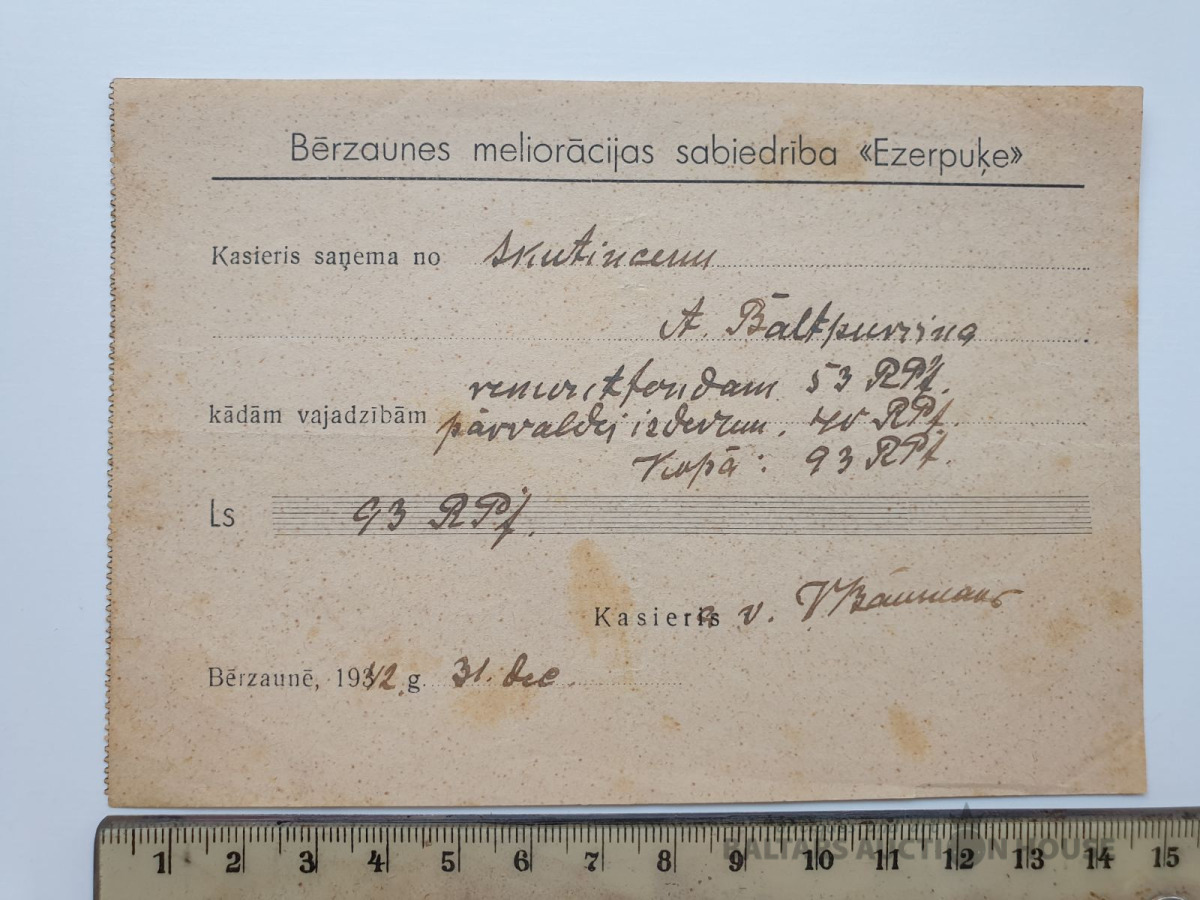 Bērzaunes meliorācijas sabiedrība «Ezerpuķe»
Kasieris saņema no
A. Baltpurviņa
remontfondam 53 RPf.
kādām vajadzībām pārvaldei izdevum. 40 RPf.
Kopā: 93 RPf.
Ls 93 RPf.
Kasieris v. VBaumans
Bērzaunē, 1942. g. 31. dec.
1 2 3 4 5 6 7 8 9 10 11 12 13 14 15
BALTARS AUCTION HOUSE